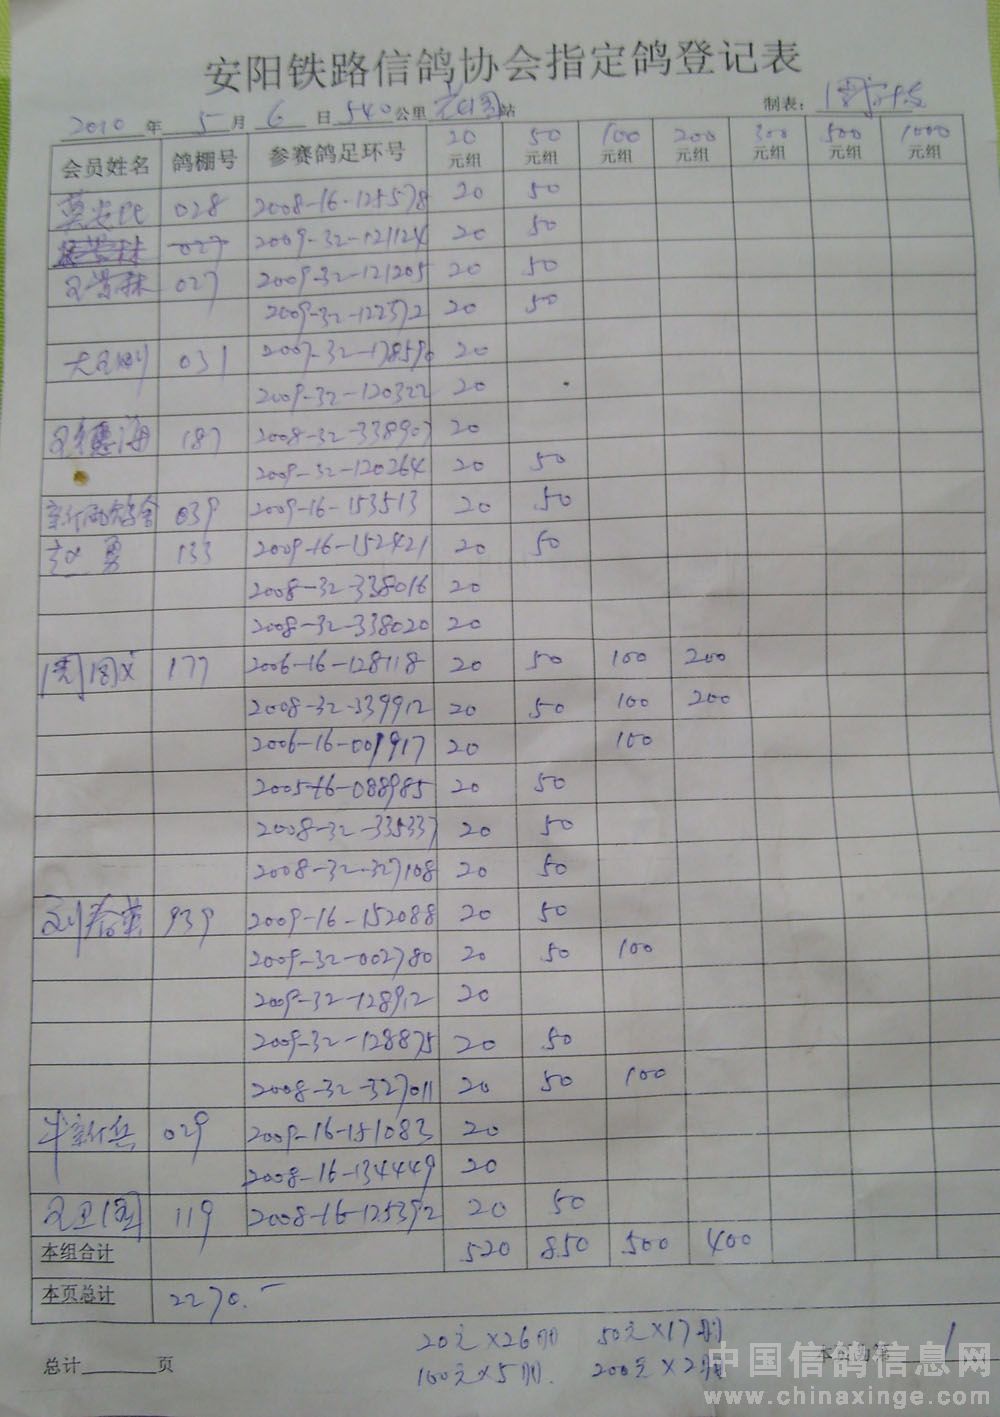 安阳铁路信鸽协会指定鸽登记表
2010 年 5 月 6 日 540 公里 站 制表：
会员姓名 鸽棚号 参赛鸽足环号 20元组 50元组 100元组 200元组 300元组 500元组 1000元组
028 2008-16-125578 20 50
027 2009-32-121124 20 50
027 2009-32-121205 20 50
2009-32-122372 20 50
031 2007-32-178590 20
2009-32-120322 20
187 2008-32-338907 20
2009-32-120264 20 50
039 2009-16-153513 20 50
赵勇 133 2009-16-152421 20 50
2008-32-338016 20
2008-32-338020 20
177 2006-16-128118 20 50 100 200
2008-32-339912 20 50 100 200
2006-16-001917 20 100
2005-16-088985 20 50
2008-32-335337 20 50
2008-32-327108 20 50
939 2009-16-152088 20 50
2009-32-002780 20 50 100
2009-32-128912 20
2009-32-128875 20 50
2008-32-327011 20 50 100
牛新兵 029 2009-16-151083 20
2008-16-134449 20
119 2008-16-125392 20 50
本组合计 520 850 500 400
本页总计 2270.—
20元×26 50元×17
总计 页 第 1
100元×5 200元×2
中国信鸽信息网
www.chinaxinge.com